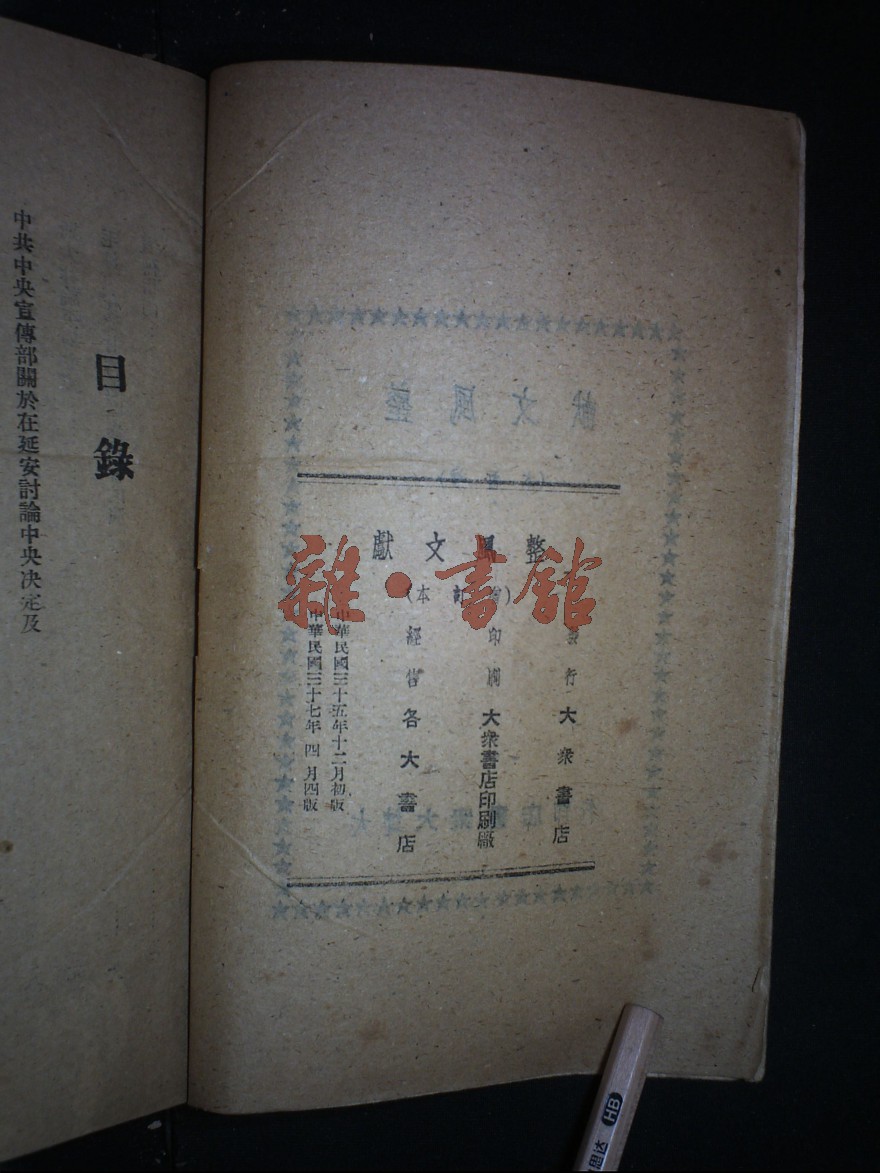 整風文獻
(訂本)
發行 大衆書店
印刷 大衆書店印刷廠
經售 各大書店
中華民國三十五年十二月初版
中華民國三十七年四月四版
目錄
中共中央宣傳部關於在延安討論中央决定及
雜·書館
HB